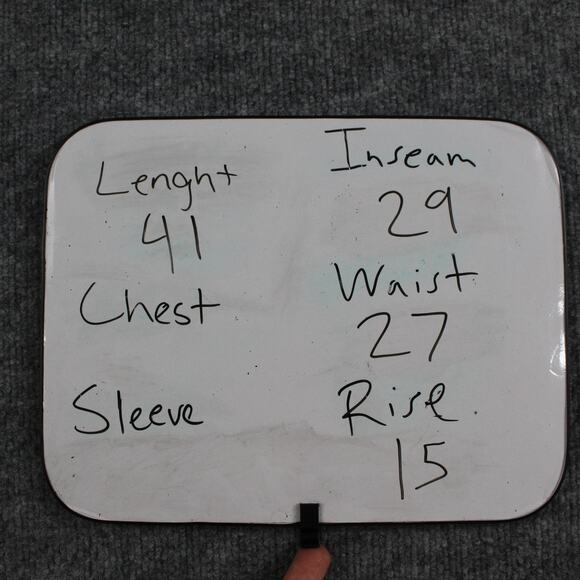 Lenght
41
Chest
Sleeve
Inseam
29
Waist
27
Rise
15